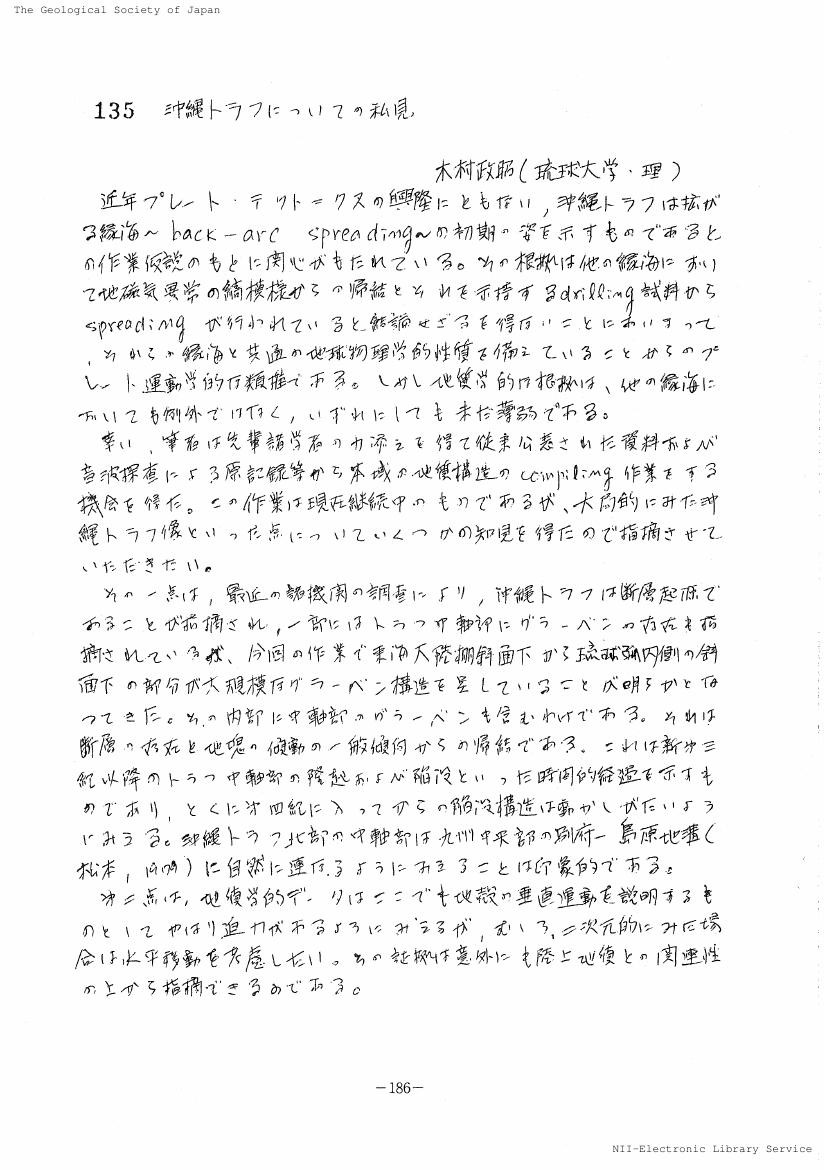 The Geological Society of Japan
135 沖縄トラフについての私見
木村政昭(琉球大学・理)
近年プレート・テクトニクスの興隆にともない,沖縄トラフは拡が
る縁海〜back-arc spreading〜の初期の姿を示すものであると
の作業仮説のもとに関心がもたれている。その根拠は他の縁海におい
て地磁気異常の縞模様からの帰結とそれを支持するdrilling試料から
spreadingが行われていると結論せざるを得ないことにあいまって
,それらの縁海と共通の地球物理学的性質を備えていることからのプ
レート運動学的な類推である。しかし地質学的な根拠は、他の縁海に
おいても例外ではなく,いずれにしても未だ薄弱である。
幸い,筆者は先輩諸学者の力添えを得て従来公表された資料および
音波探査による原記録等から本域の地質構造のcompiling作業をする
機会を得た。この作業は現在継続中のものであるが、大局的にみた沖
縄トラフ像といった点についていくつかの知見を得たので指摘させて
いただきたい。
その一点は,最近の諸機関の調査により,沖縄トラフは断層起源で
あることが指摘され,一部にはトラフ中軸部にグラーベンの存在も指
摘されているが、今回の作業で東海大陸棚斜面下から琉球弧内側の斜
面下の部分が大規模なグラーベン構造を呈していることが明らかとな
ってきた。その内部に中軸部のグラーベンも含むわけである。それは
断層の存在と地塊の傾動の一般傾向からの帰結である。これは新第三
紀以降のトラフ中軸部の隆起および陥没といった時間的経過を示すも
のであり,とくに第四紀に入ってからの陥没構造は動かしがたいよう
にみえる。沖縄トラフ北部の中軸部は九州中央部の別府ー島原地溝(
松本,1979)に自然に連なるようにみえることは印象的である。
第二点は,地質学的データはここでも地殻の垂直運動を説明するも
のとしてやはり迫力があるようにみえるが,むしろ,二次元的にみた場
合は水平移動を考慮したい。その証拠は意外にも陸上地質との関連性
の上から指摘できるのである。
-186-
NII-Electronic Library Service